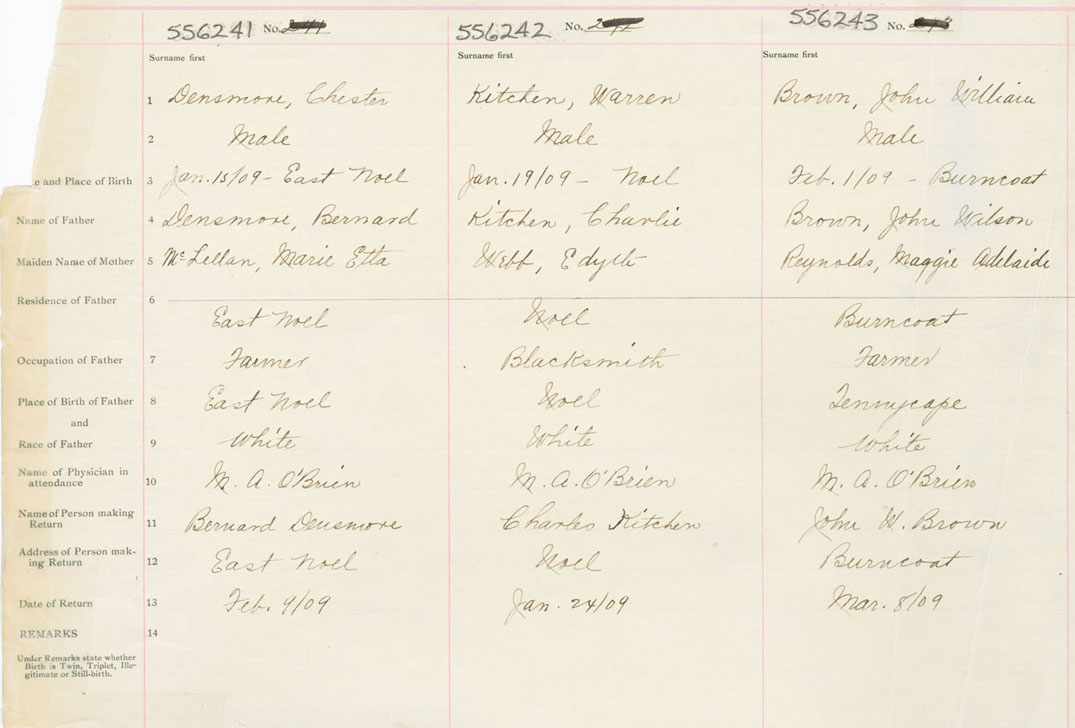 556241 No. 556242 No. 556243 No.
Surname first Surname first Surname first
1 Densmore, Chester Kitchen, Warren Brown, John William
2 Male Male Male
e and Place of Birth 3 Jan. 15/09 - East Noel Jan. 19/09 - Noel Feb. 1/09 - Burncoat
Name of Father 4 Densmore, Bernard Kitchen, Charlie Brown, John Wilson
Maiden Name of Mother 5 McLellan, Marie Etta Webb, Edyth Reynolds, Maggie Adelaide
Residence of Father 6
East Noel Noel Burncoat
Occupation of Father 7 Farmer Blacksmith Farmer
Place of Birth of Father 8 East Noel Noel Tennycape
and
Race of Father 9 White White White
Name of Physician in
attendance 10 M. A. O'Brien M. A. O'Brien M. A. O'Brien
Name of Person making
Return 11 Bernard Densmore Charles Kitchen John W. Brown
Address of Person mak-
ing Return 12 East Noel Noel Burncoat
Date of Return 13 Feb. 9/09 Jan. 24/09 Mar. 8/09
REMARKS 14
Under Remarks state whether
Birth is Twin, Triplet, Ille-
gitimate or Still-birth.